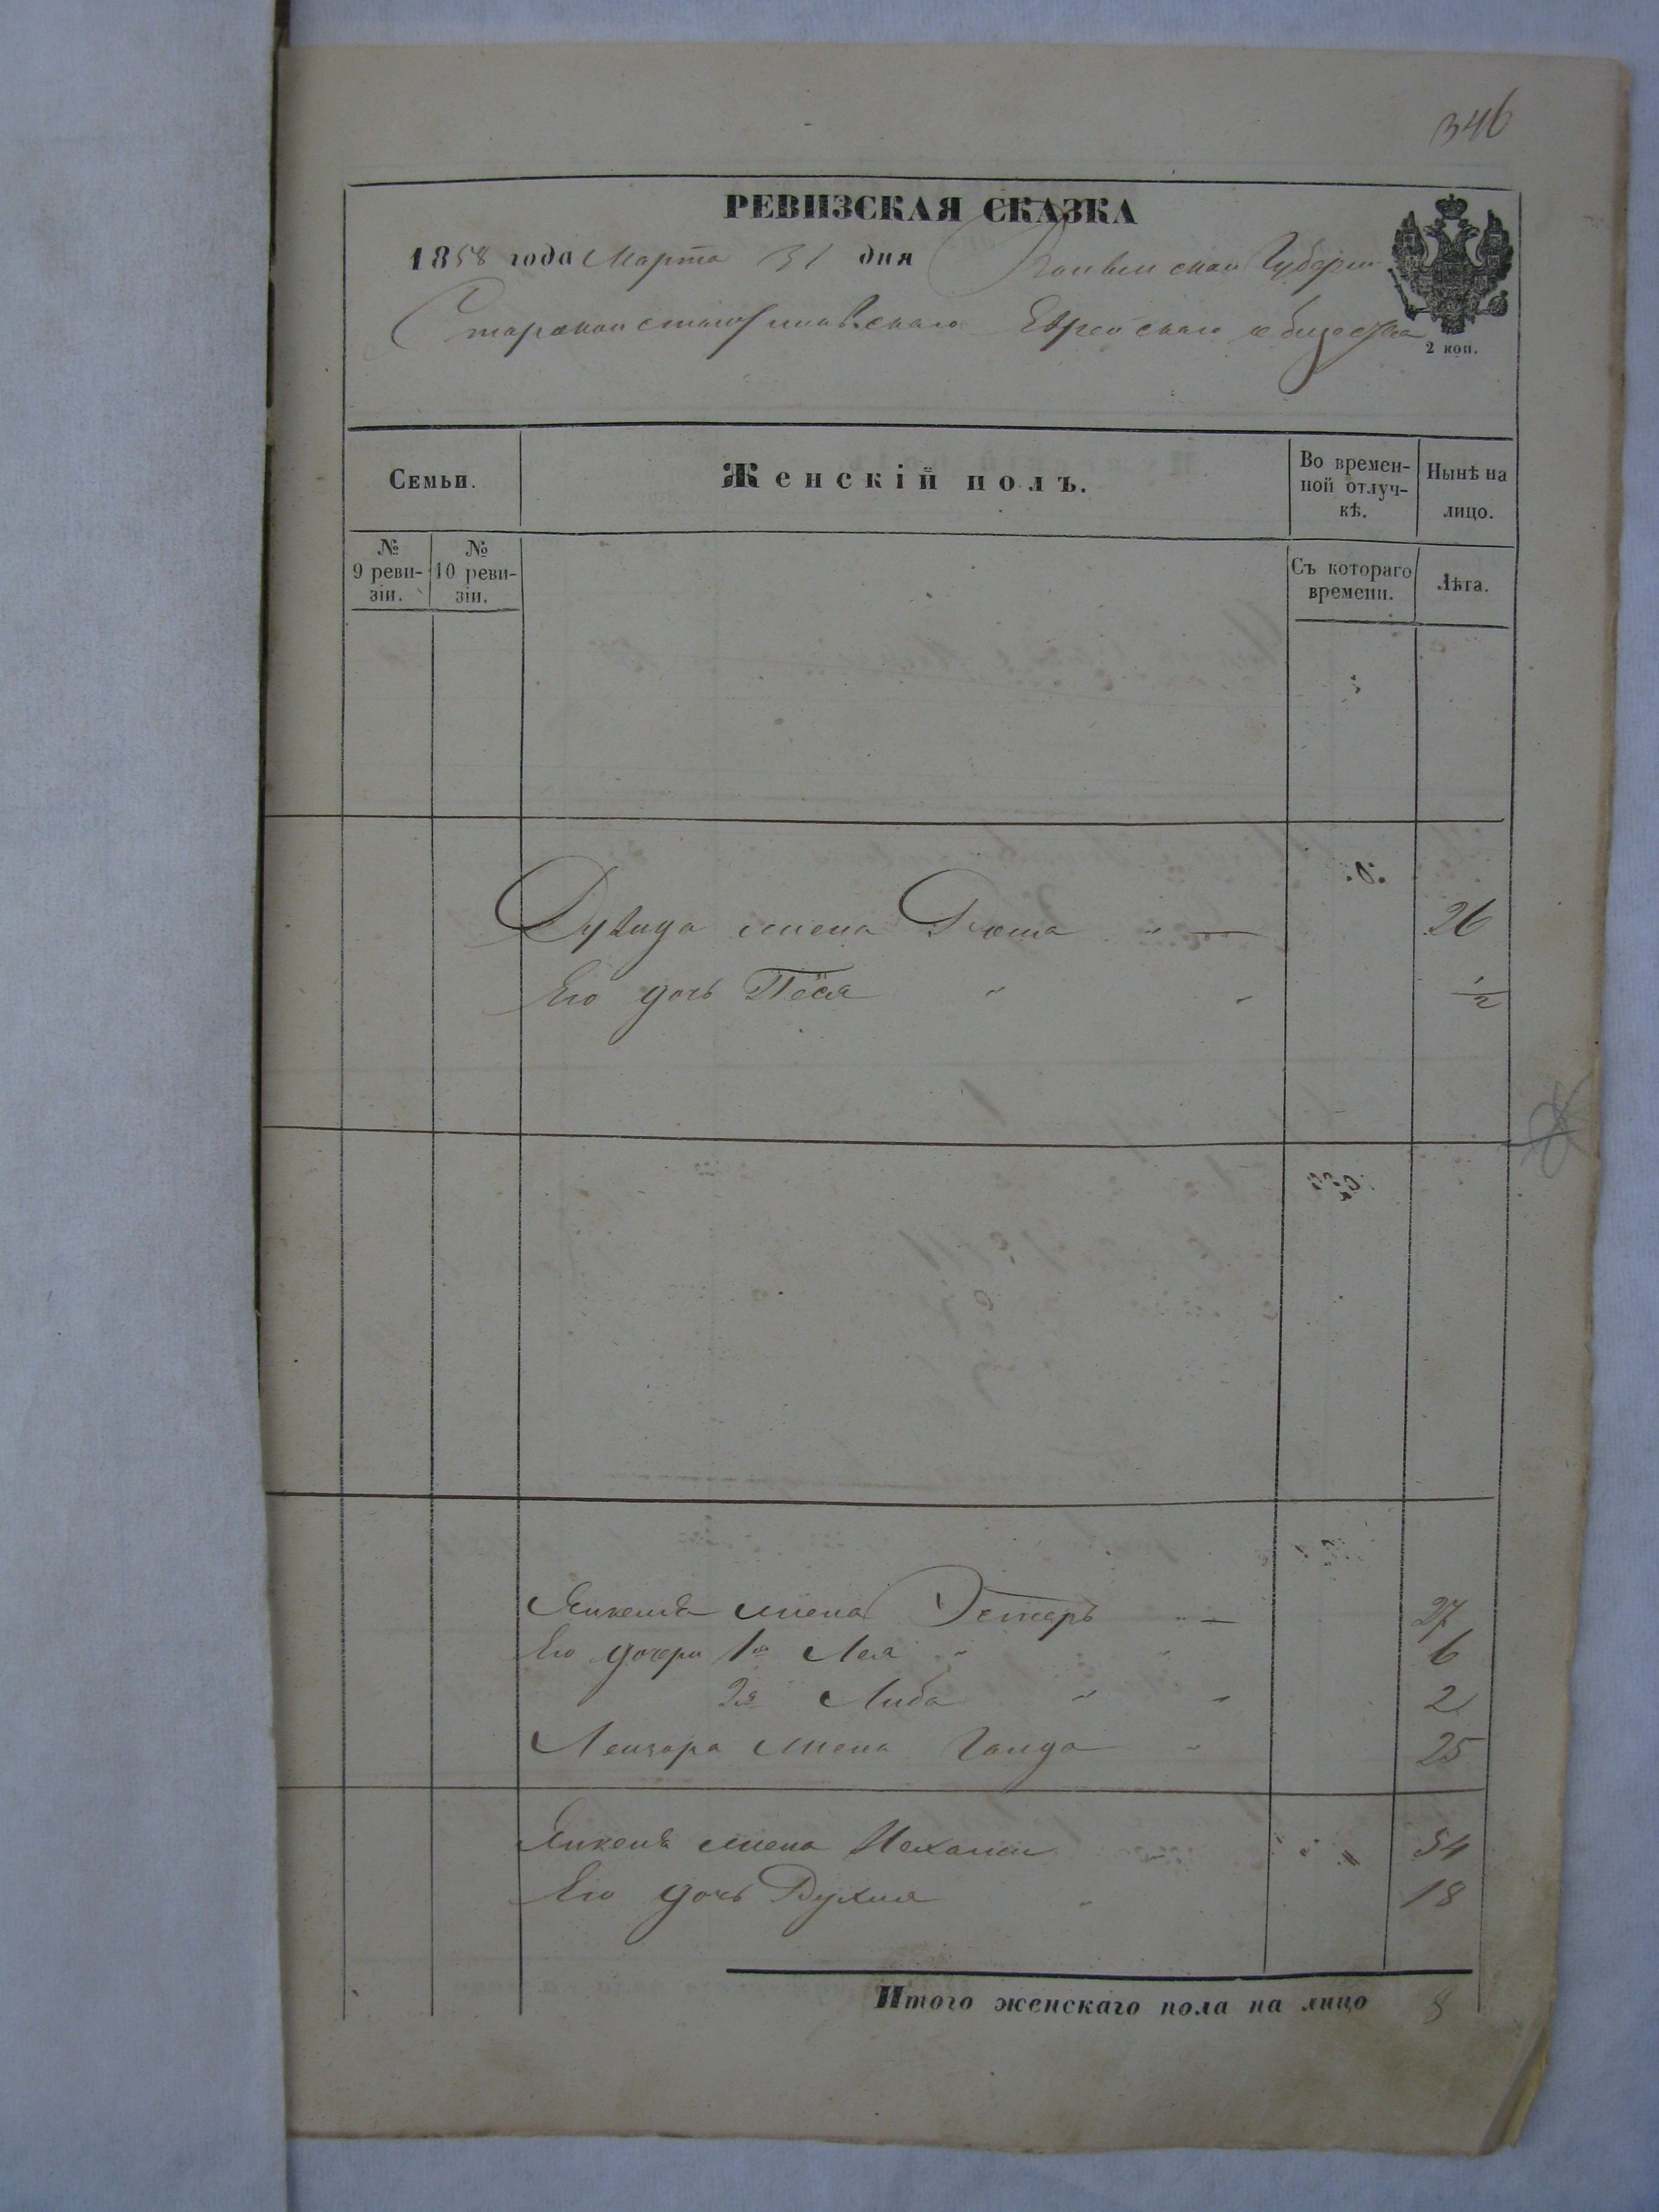 346
РЕВИЗСКАЯ СКАЗКА
1858 года Марта 31 дня Волынской Губерніи
Староконстантиновскаго Еврейскаго общества
2 коп.
Семьи.
Женскій полъ.
Во времен-
ной отлуч-
кѣ.
Нынѣ на
лицо.
№
9 реви-
зіи.
№
10 реви-
зіи.
Съ котораго
времени.
Лѣта.
жена 26
Его дочь Песя " " 1/2
жена Эстеръ " 27
Его дочери 1я Лея " " 6
2я Либа " " 2
Лейзора жена Голда " 25
жена 54
Его дочь Рухля " 18
Итого женскаго пола на лицо 8